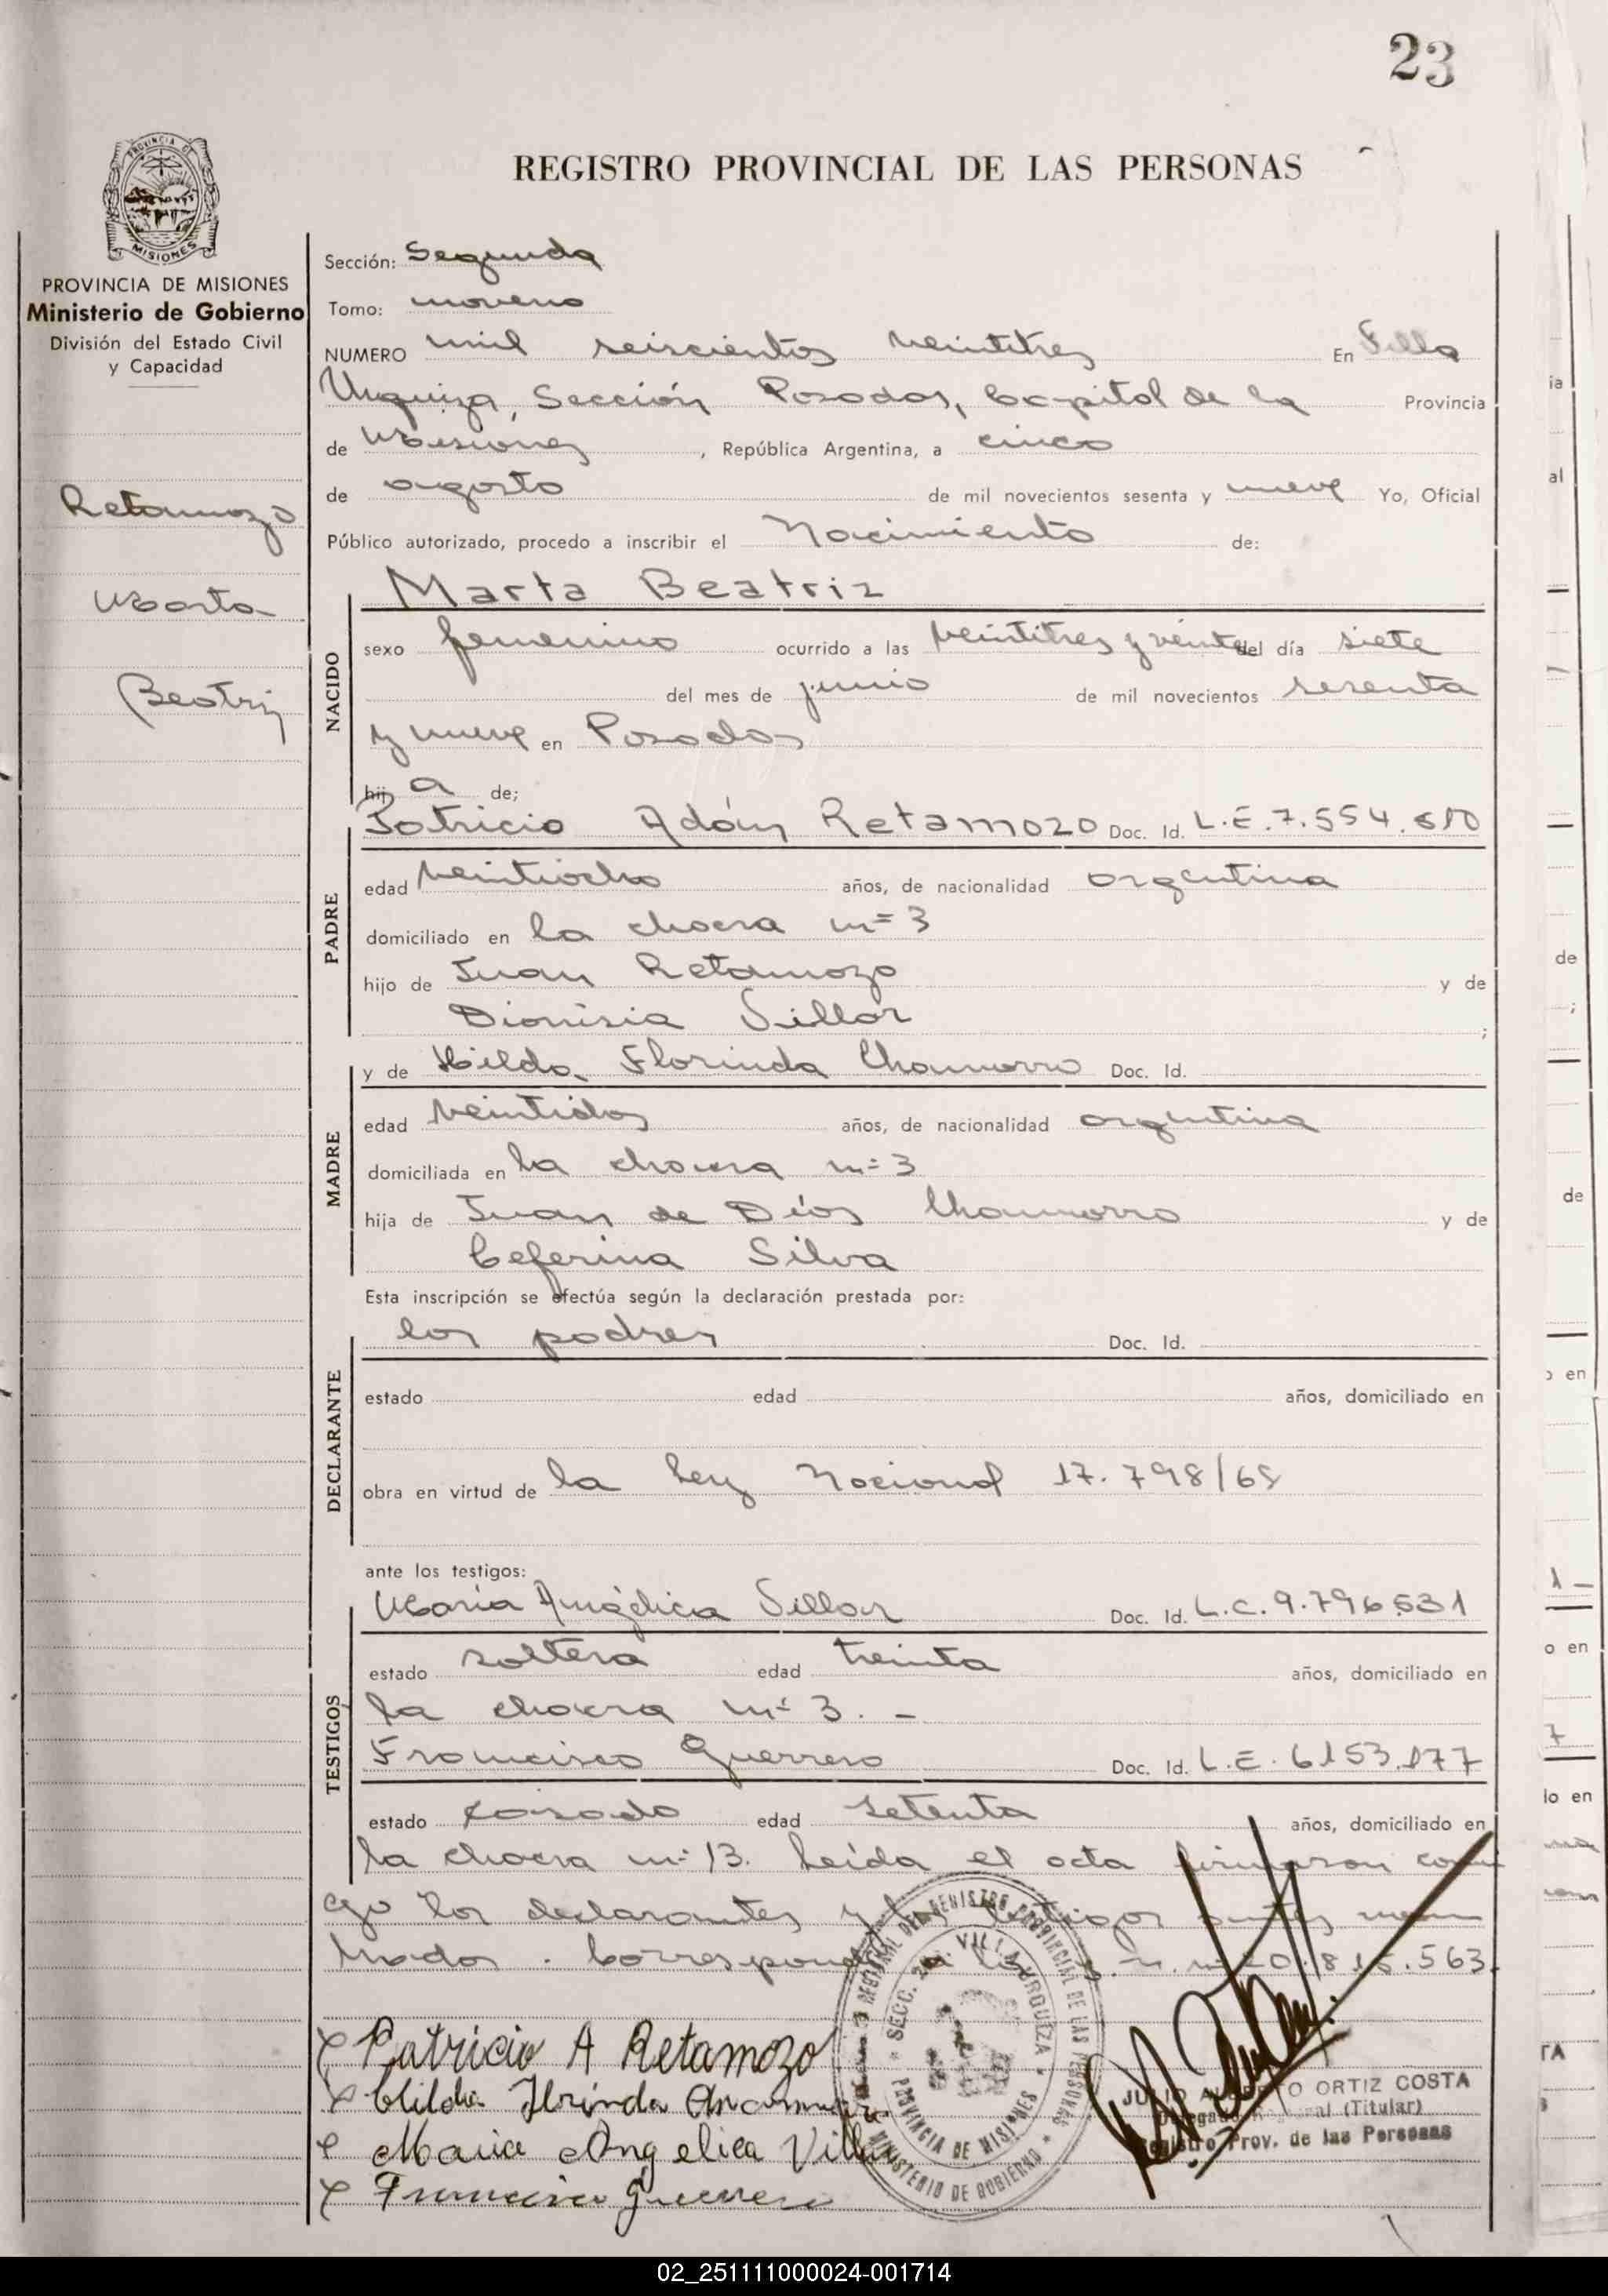 23
REGISTRO PROVINCIAL DE LAS PERSONAS
PROVINCIA DE
MISIONES
PROVINCIA DE MISIONES
Ministerio de Gobierno
División del Estado Civil
y Capacidad
Retamozo
Marta
Beatriz
Sección: Segunda
Tomo: noveno
NUMERO mil seiscientos veintitres En Villa
Urquiza, Sección Posadas, Capital de la Provincia
de Misiones, República Argentina, a cinco
de agosto de mil novecientos sesenta y nueve Yo, Oficial
Público autorizado, procedo a inscribir el Nacimiento de:
NACIDO
Marta Beatriz
sexo femenino ocurrido a las veintitres y veinte del día siete
del mes de junio de mil novecientos sesenta
y nueve en Posadas
hij a de;
PADRE
Patricio Adán Retamozo Doc. Id. L.E. 7.554.
edad veintiocho años, de nacionalidad argentina
domiciliado en la chacra nº 3
hijo de Juan Retamozo y de
Dionisia Villar ;
MADRE
y de Hilda Florinda Chamorro Doc. Id.
edad veintidos años, de nacionalidad argentina
domiciliada en la chacra nº 3
hija de Juan de Diós Chamorro y de
Ceferina Silva
Esta inscripción se efectúa según la declaración prestada por:
DECLARANTE
los padres Doc. Id.
estado edad años, domiciliado en
obra en virtud de la Ley Nacional 17.798/68
ante los testigos:
TESTIGOS
María Angélica Villar Doc. Id. L.C. 9.796.531
estado soltera edad treinta años, domiciliado en
la chacra nº 3. -
Francisco Guerrero Doc. Id. L.E. 6153.177
estado casado edad setenta años, domiciliado en
la chacra nº 13. Leída el acta firmaron conmi
go los declarantes y los testigos antes nom
brados. Corresponde 20.815.563.
Patricio A Retamozo
Hilda Florinda Chamorro
Maria Angelica Villar
Francisco Guerrero
REGIONAL DEL REGISTRO PROVINCIAL DE LAS PERSONAS
MINISTERIO DE GOBIERNO
SECC. 2da. VILLA URQUIZA
PROVINCIA DE MISIONES
JULIO ALBERTO ORTIZ COSTA
Delegado Regional (Titular)
Registro Prov. de las Personas
ía
al
de
;
de
o en
1 -
o en
7
lo en
TA
02_251111000024-001714